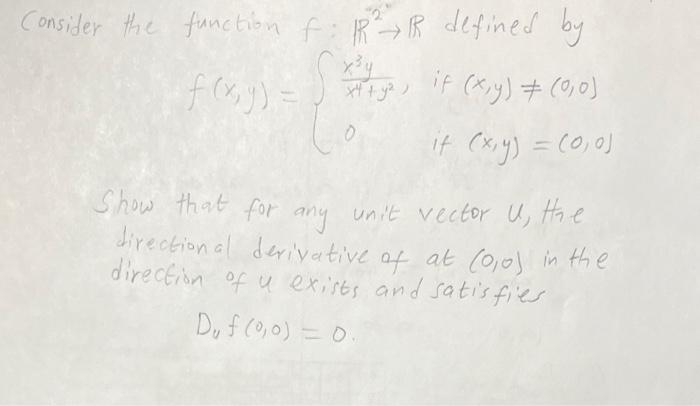 Consider the function f : ℝ² → ℝ defined by
f(x,y) = { x³y / (x⁴ + y²), if (x,y) ≠ (0,0)
0 if (x,y) = (0,0)
Show that for any unit vector u, the
directional derivative of at (0,0) in the
direction of u exists and satisfies
Dᵤ f(0,0) = 0.